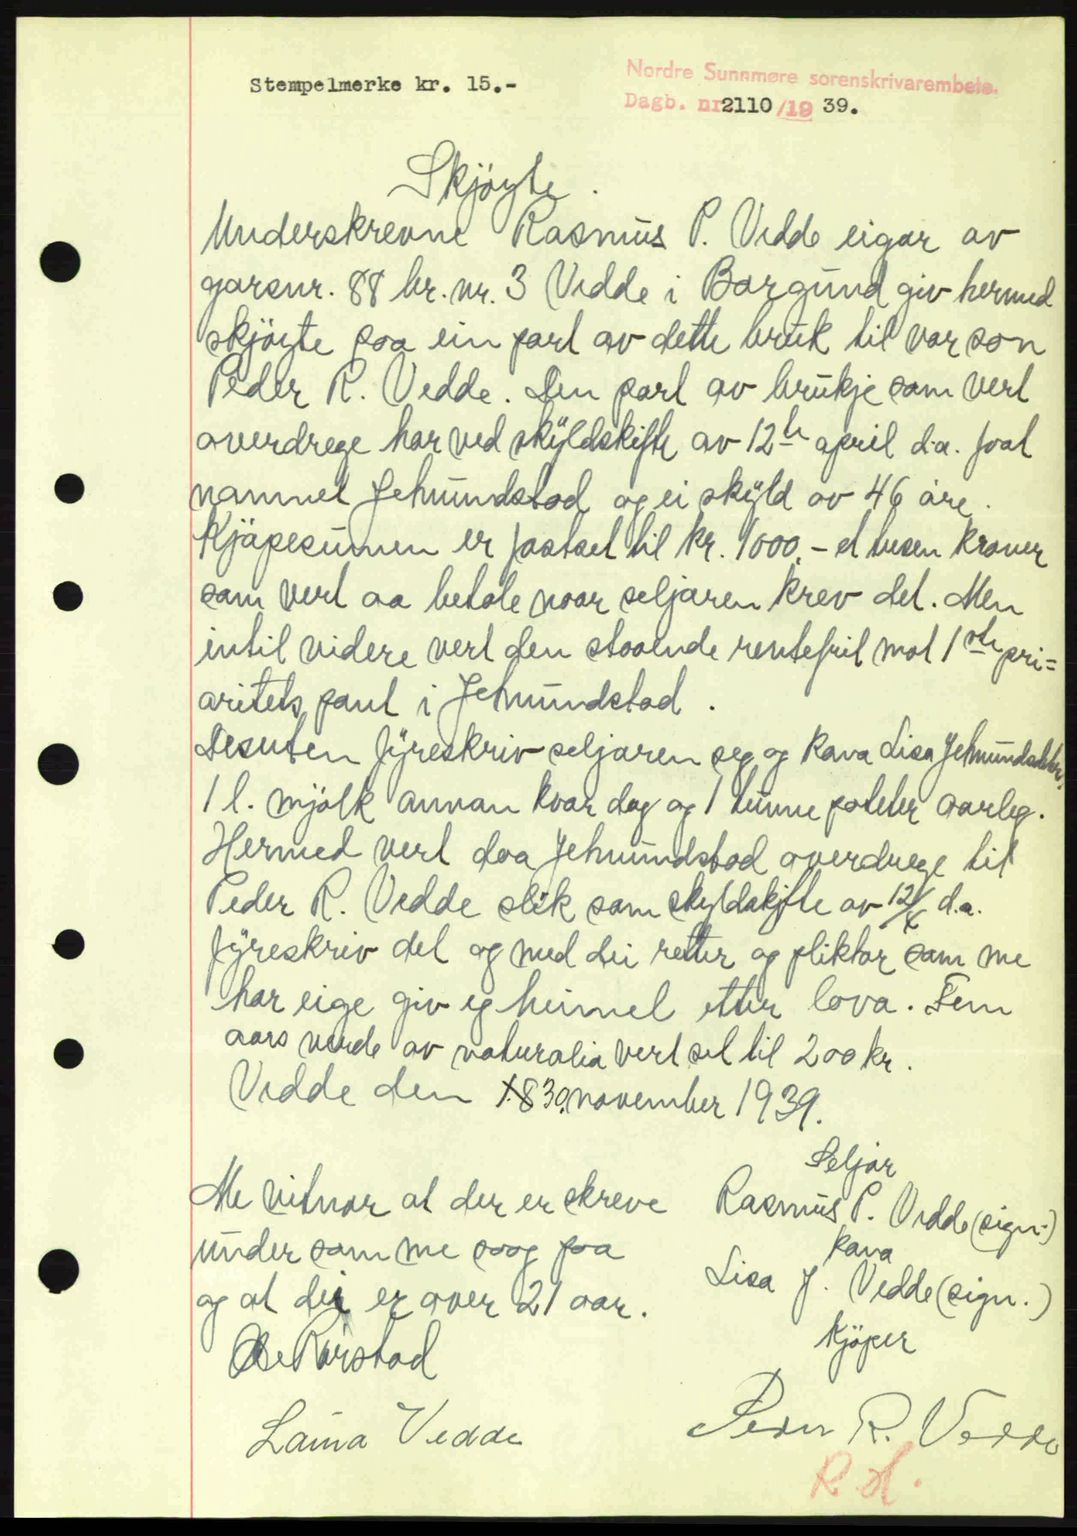 Stempelmerke kr. 15.-
Nordre Sunnmøre sorenskrivarembete.
Dagb. nr 2110/19 39.
Skjöyte.
Underskrevne Rasmus P. Vedde eigar av
garsnr. 88 br. nr. 3 Vedde i Borgund giv hermed
skjöyte paa ein part av dette bruk til vor son
Peder R. Vedde. Den part av brukje som vert
overdrege har ved skyldskifte av 12te april d.a. foat
namnet Jetmundstad og ei skyld av 46 øre.
Kjöpesumen er fastset til kr. 1000.- et tusen kroner
som vert aa betale naar seljaren krev det. Men
intil videre vert den staaende rentefrit mot 1ste pri=
oritets pant i Jetmundstad.
Desuten fyreskriv seljaren seg og kona Lisa Jetmundsdotter
1 l. mjolk annan kvar dag og 1 tunne poteter aarleg.
Hermed vert daa Jetmundstad overdrege til
Peder R. Vedde slik som skyldskifte av 12/4 d.a.
fyreskriv det og med dei retter og pliktar som me
har eige giv eg heimel etter lova. Fem
aars verde av naturalia vert set til 200 kr.
Vedde den 30. november 1939.
Seljar
Me vitnar at der er skreve
Rasmus P. Vedde (sign.)
under som me saag paa
kona
Lisa J. Vedde (sign.)
og at dei er over 21 aar.
Kjöper
Rørstad
Peder R. Vedde
Laura Vedde
R. H.